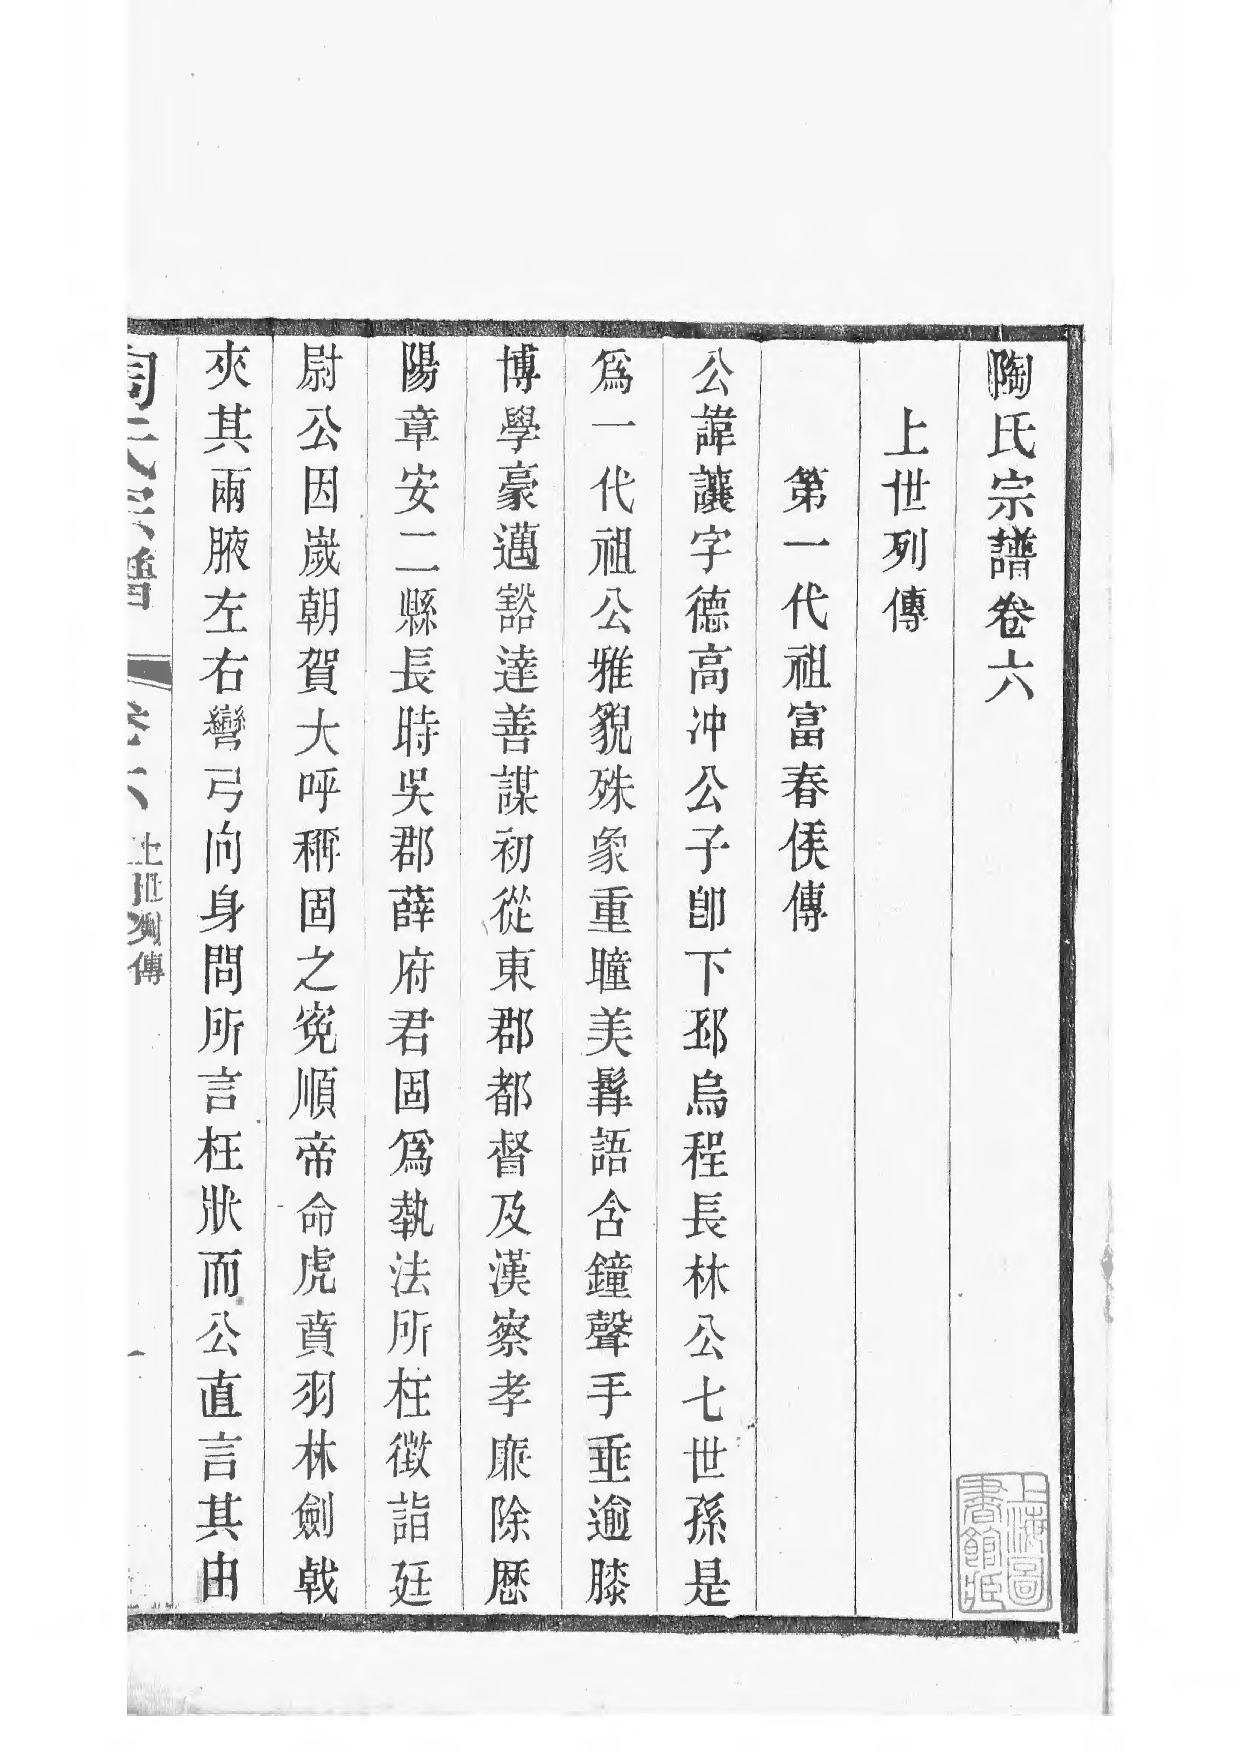 陶氏宗譜卷六
上世列傳
第一代祖富春侯傳
公諱讓字德高冲公子卽下邳烏程長林公七世孫是
爲一代祖公雅貌殊象重瞳美髯語含鐘聲手垂逾膝
博學豪邁豁達善謀初從東郡都督及漢察孝廉除歷
陽章安二縣長時吳郡薛府君固爲執法所枉徵詣廷
尉公因歲朝賀大呼稱固之寃順帝命虎賁羽林劍戟
夾其兩腋左右彎弓向身問所言枉狀而公直言其由
陶氏宗譜
卷六
上世列傳
一
上海圖書館藏